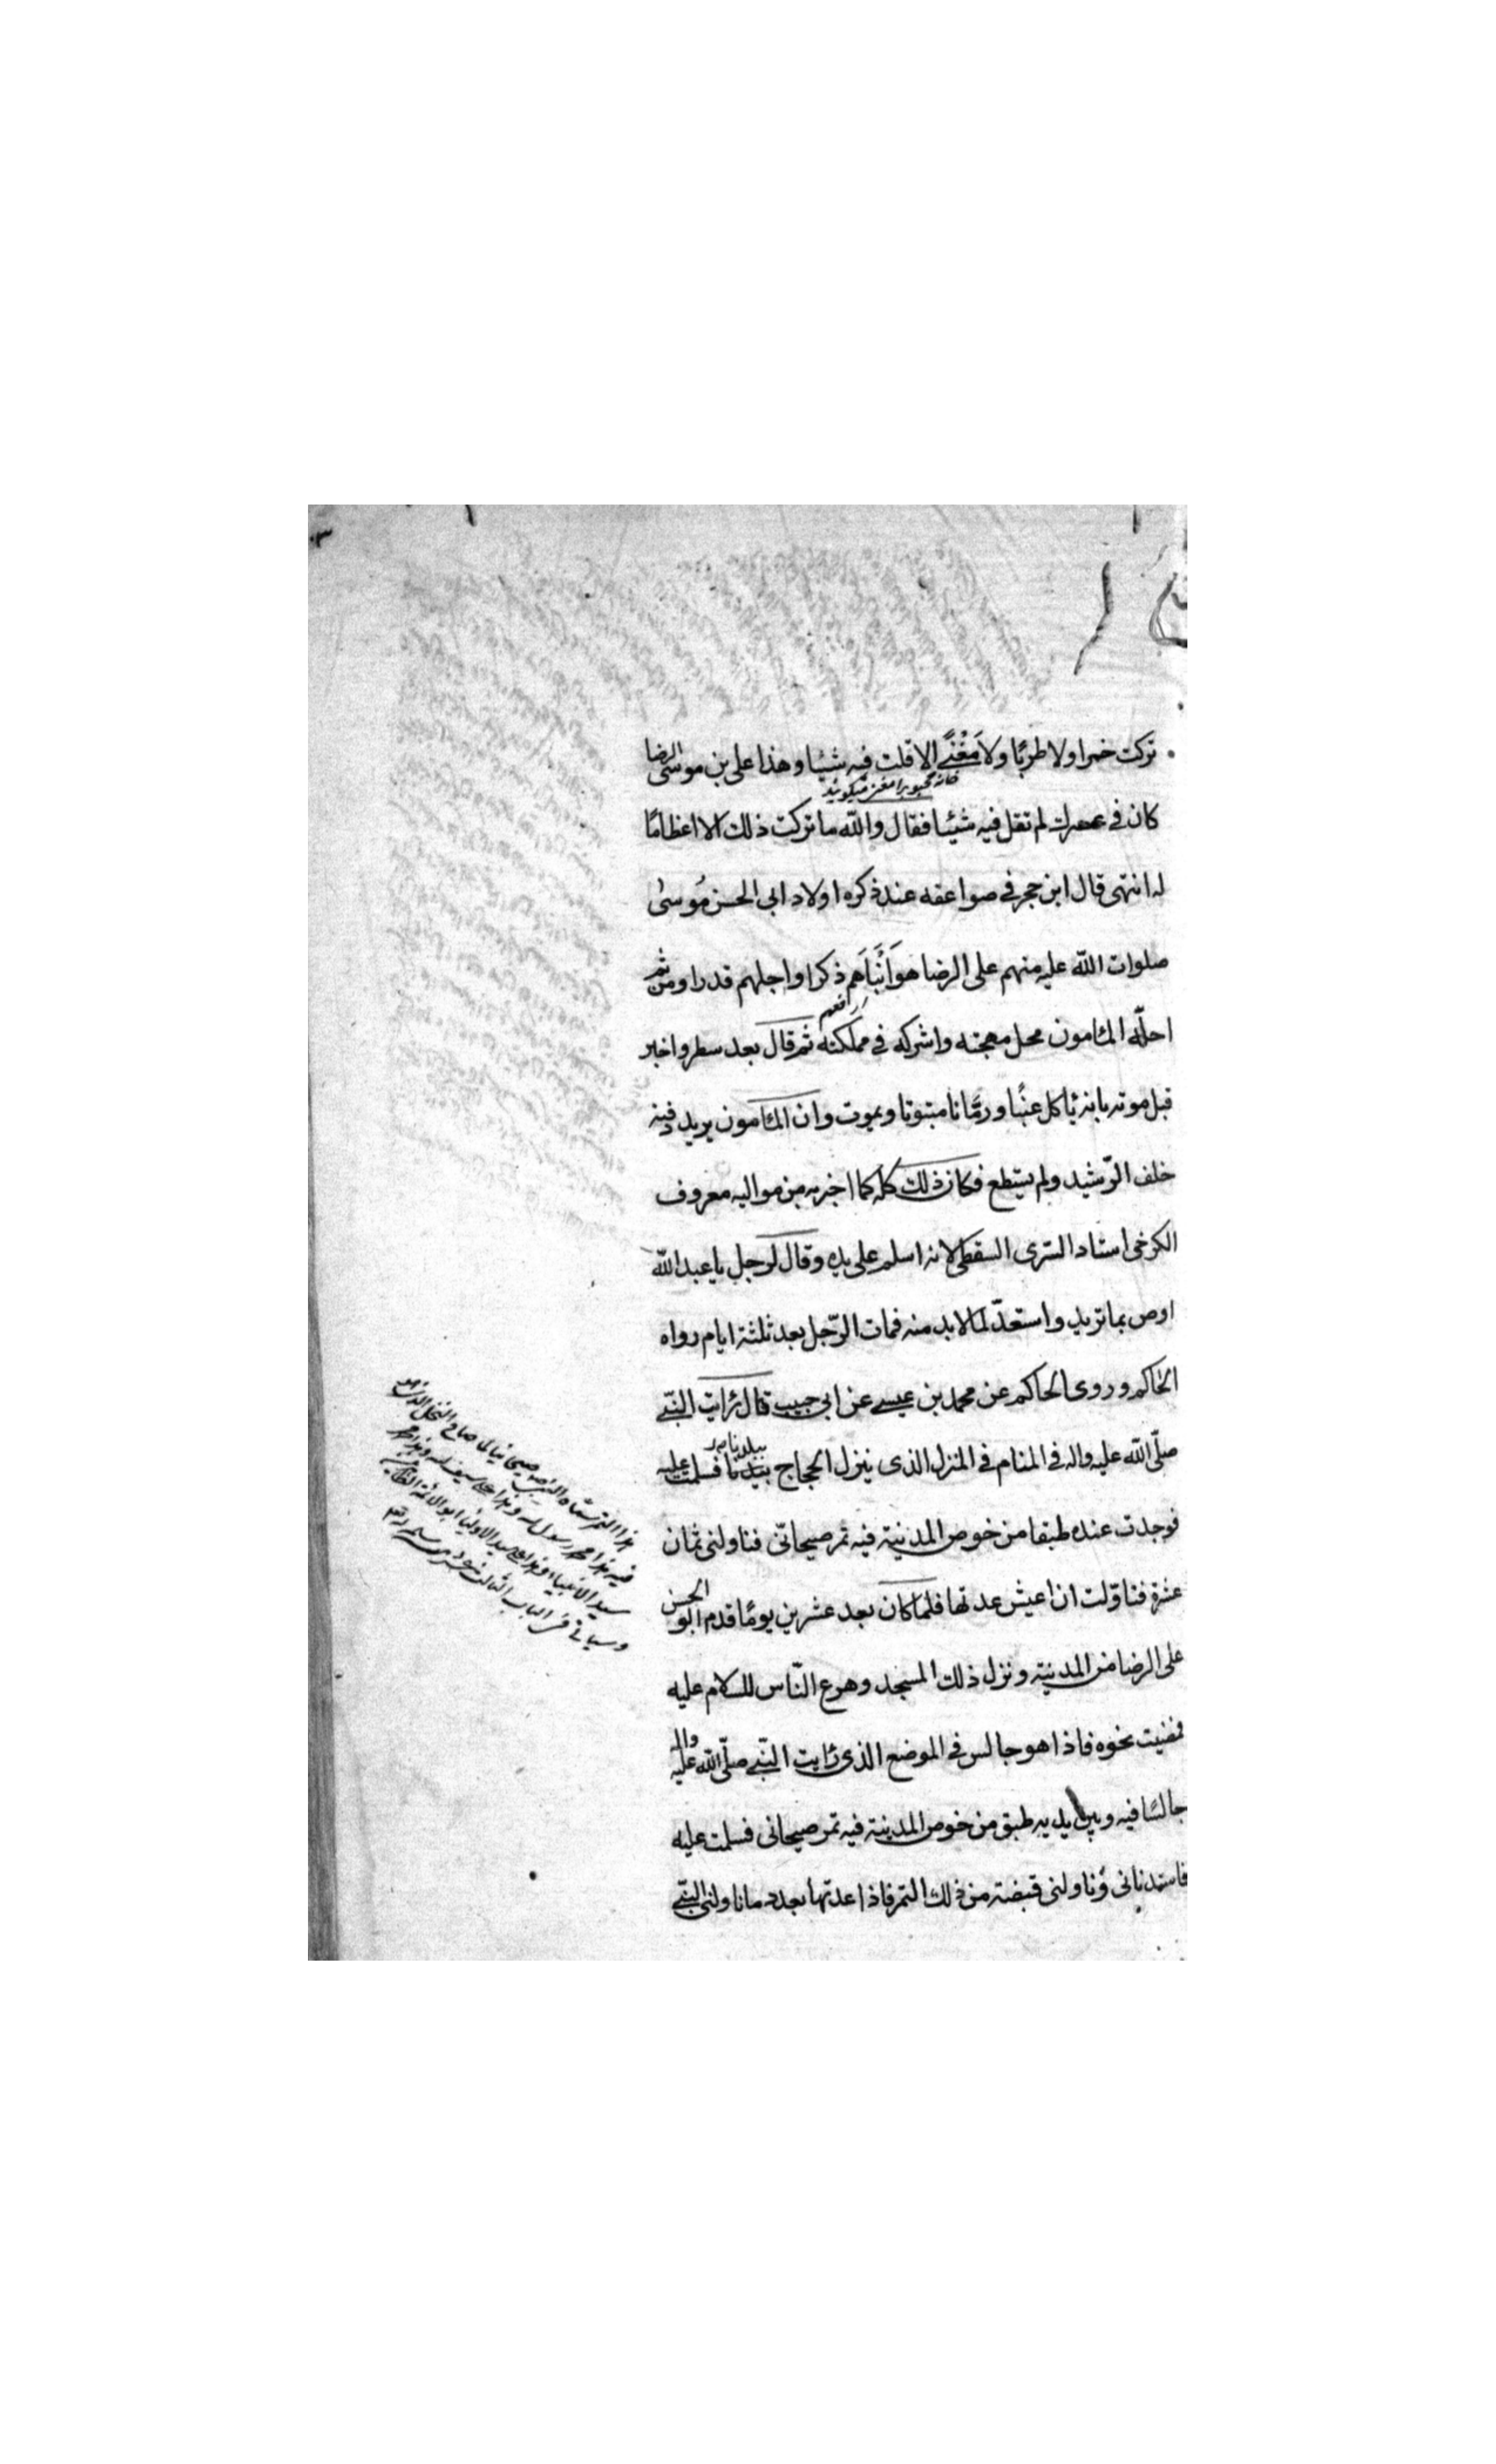 تركت خمرا ولا طربًا ولا مَغْنًے الا قلت فيه شيئا وهذا على بن موسى الرضا
خانه محبوبرا مغنى ميكويند
كان فى عصرك لم تقل فيه شيئا فقال والله ما تركت ذلك الا اعظامًا
له انتهى قال ابن حجر فى صواعقه عند ذكره اولاد ابى الحسن مُوسىٰ
صلوات الله عليه منهم على الرضا هو اَنْبَاَهم ذكرا واجلهم قدرا ومن ثم
احلّه المأمون محل مهجته واشركه فى مملكته ثم قال بعد سطر واخبر
قبل موته بانه ياكل عنبًا ورمّانا مبثوثا ويموت وان المأمون يريد دفنه
خلف الرّشيد ولم يستطع فكان ذلك كله كما اخبر به من مواليه معروف
الكرخى استاد السّرى السقطى لانه اسلم على يده وقال لرجل يا عبد الله
اوص بما تريد واستعدّ لما لا بد منه فمات الرّجل بعد ثلثة ايام رواه
الحاكم وروى الحاكم عن محمد بن عيسے عن ابى حبيب قال رايت النبّے
صلّى الله عليه واله فى المنام فى المنزل الذى ينزل الحجاج ببلدنا فسلمت عليه
ببلدنا
فوجدت عنده طبقا من خوص المدينة فيه تمر صيحانّى فناولنى ثمان
عشرة فتاوّلت ان اعيش عدتها فلما كان بعد عشرين يومًا قدم ابو الحسن
على الرضا من المدينة ونزل ذلك المسجد وهرع النّاس للسلام عليه
فمضيت نحوه فاذا هو جالس فى الموضع الذى رايت النبّے صلّى الله عليه واله
جالسًا فيه وبين يديه طبق من خوص المدينة فيه تمر صيحانى فسلمت عليه
فاستدنانى وناولنى قبضة من ذلك التمر فاذا عدتها بعدد ما ناولنى النبّے
هذا التمر سماه النبى صيحانيا لما صاح النخل
فيه هذا محمد رسول الله وهذا على سيف الله وهذا محمد
سيد الانبياء وهذا على سيد الاولياء ابو الائمة الطاهرين
وسياتى فى الباب الثالث